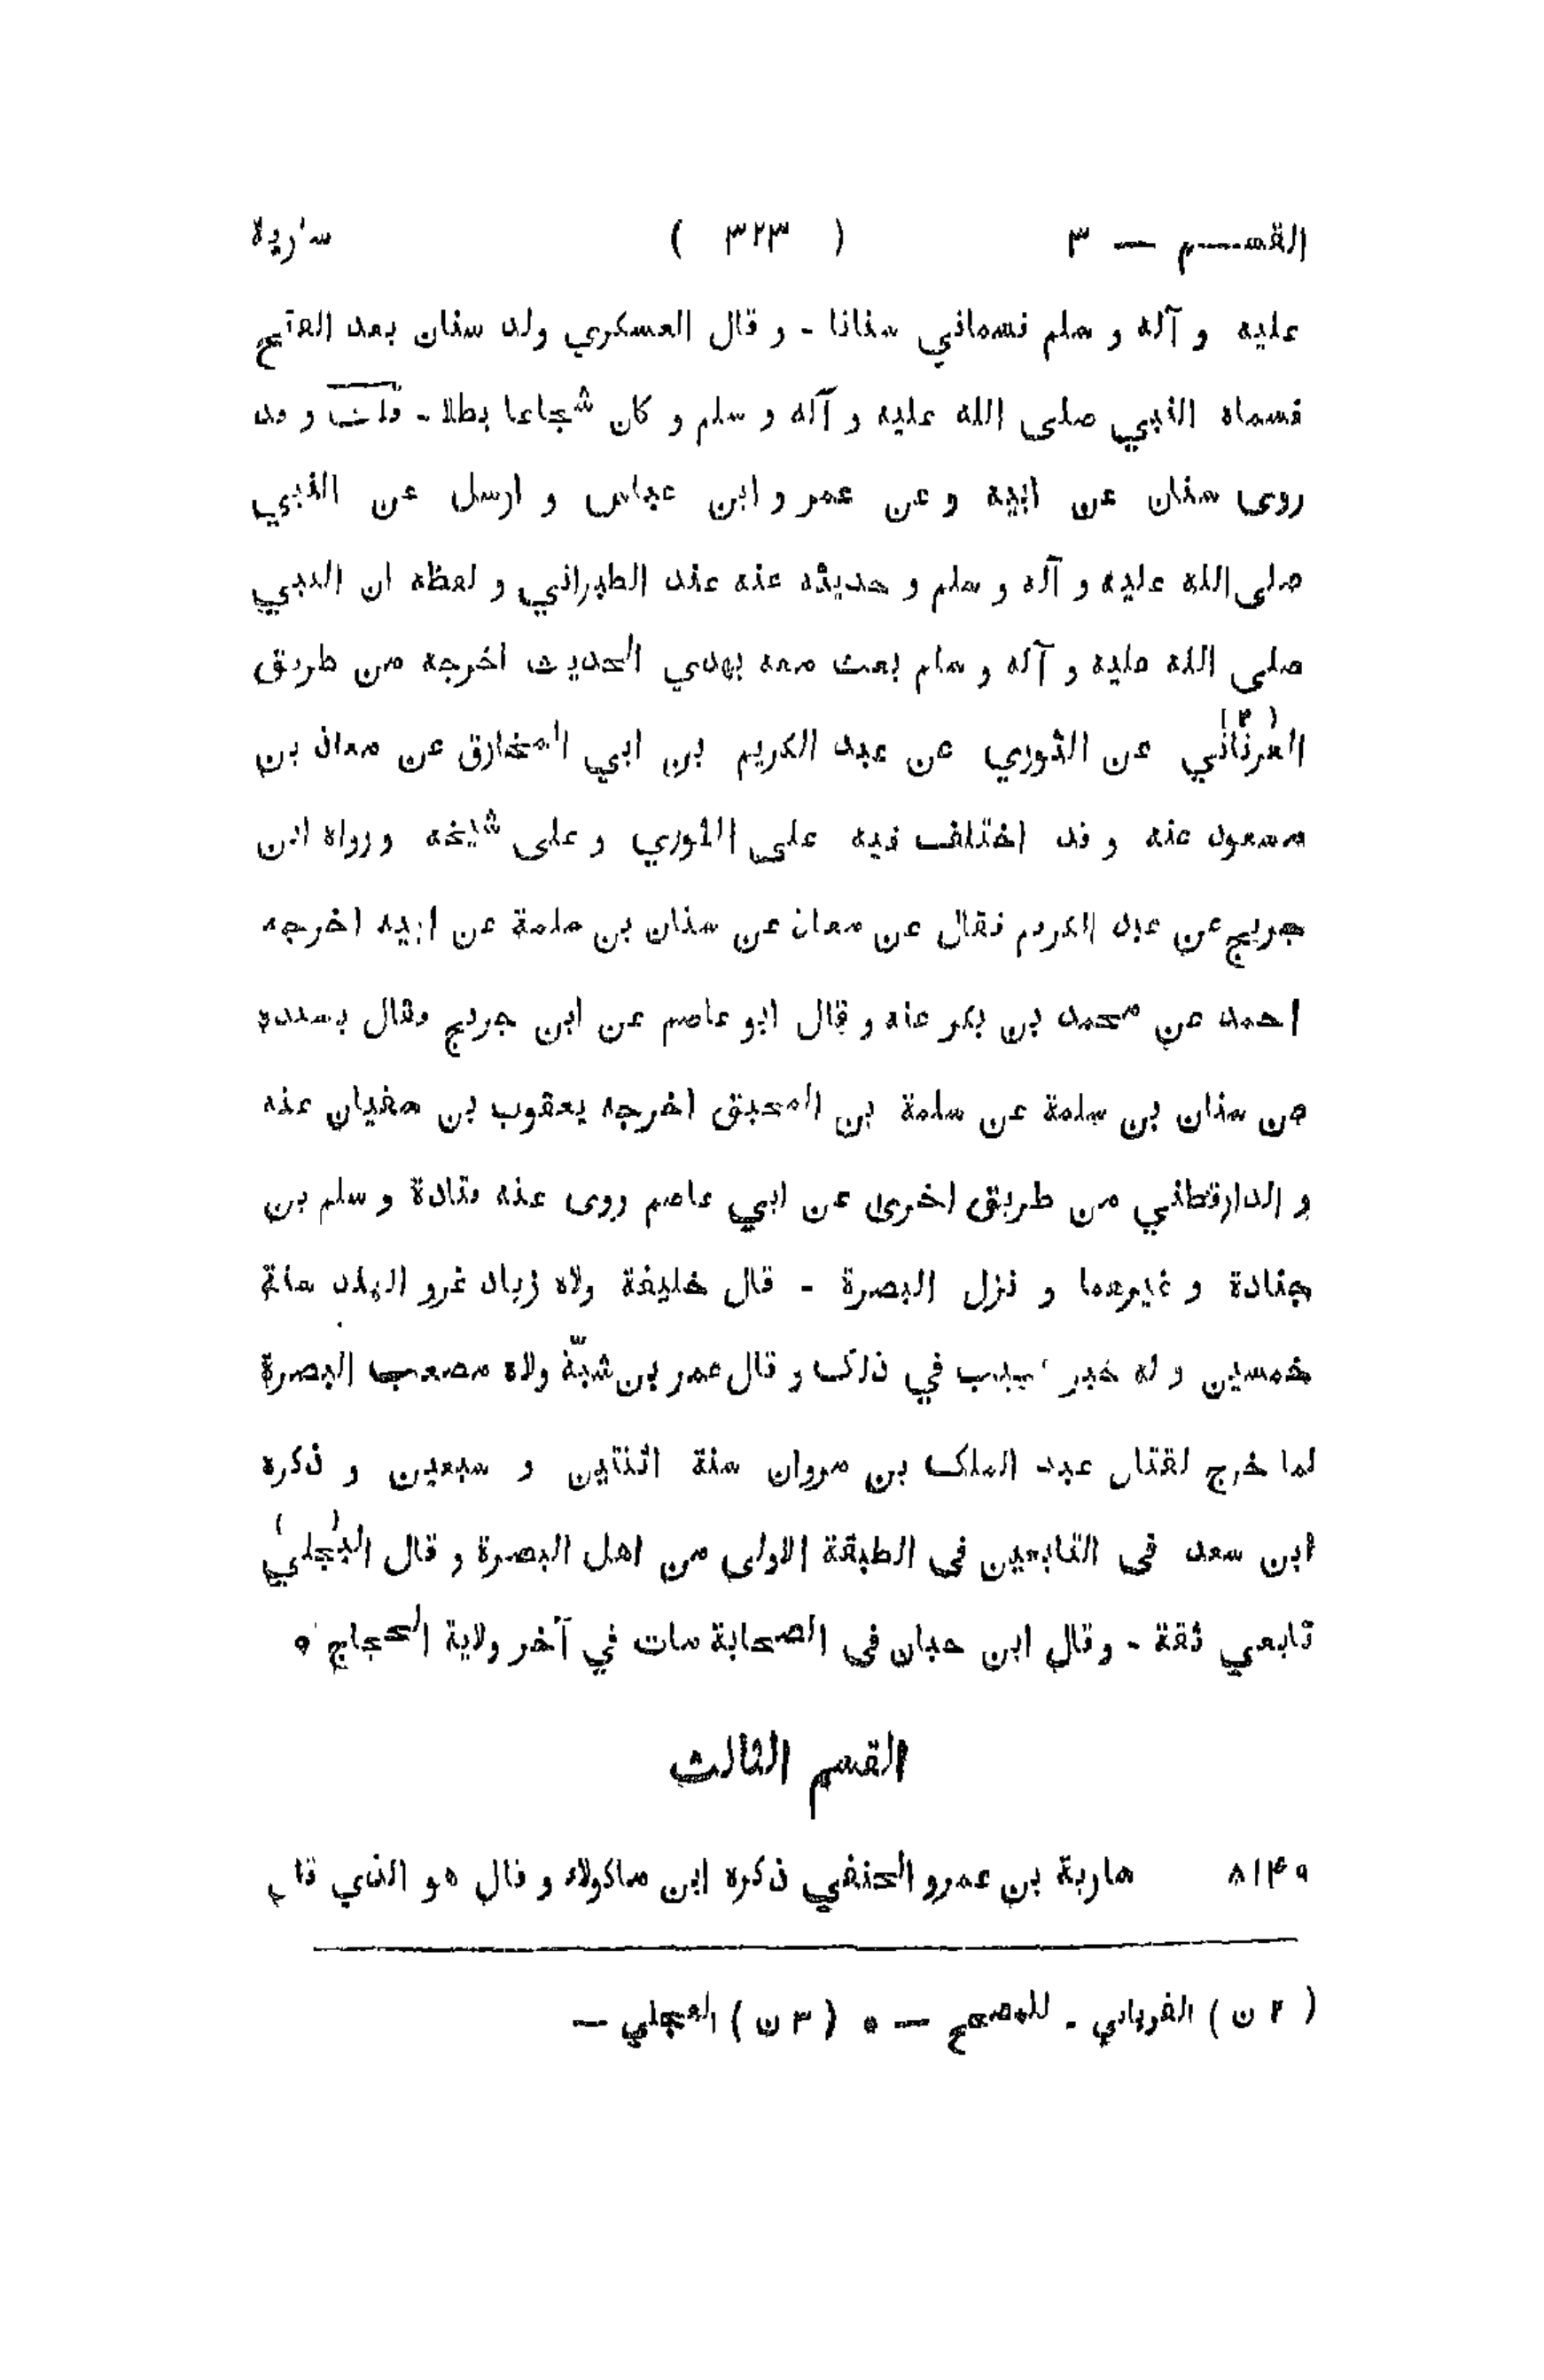 القسم — ٣ ( ٣٢٣ ) سارية
عليه و آله و سلم فسماني سنانا - و قال العسكري ولد سنان بعد الفتح
فسماه النبي صلى الله عليه و آله و سلم و كان شجاعا بطلا - قلت و قد
روى سنان عن ابيه و عن عمر و ابن عباس و ارسل عن النبي
صلى الله عليه و آله و سلم و حديثه عنه عند الطبراني و لفظه ان النبي
صلى الله عليه و آله و سلم بعث معه بهدي الحديث اخرجه من طريق
(٢)
عن الثوري عن عبد الكريم بن ابي المخارق عن معاذ بن
مسعود عنه و قد اختلف فيه على الثوري و على شيخه و رواه ابن
جريج عن عبد الكريم فقال عن معاذ عن سنان بن سلمة عن ابيه اخرجه
احمد عن محمد بن بكر عنه و قال ابو عاصم عن ابن جريج فقال بسنده
عن سنان بن سلمة عن سلمة بن المحبق اخرجه يعقوب بن سفيان عنه
و الدارقطني من طريق اخرى عن ابي عاصم روى عنه قتادة و سلم بن
جنادة و غيرهما و نزل البصرة - قال خليفة ولاه زياد غزو الهند سنة
خمسين و له خبر عجيب في ذلك و قال عمر بن شبّة ولاه مصعب البصرة
لما خرج لقتال عبد الملك بن مروان سنة اثنتين و سبعين و ذكره
ابن سعد فى التابعين فى الطبقة الاولى من اهل البصرة و قال البجلي
تابعي ثقة - و قال ابن حبان فى الصحابة مات في آخر ولاية الحجاج ه
القسم الثالث
٨١٣٩ سارية بن عمرو الحنفي ذكره ابن ماكولاء و قال هو الذي قال
( ٢ ن ) الفريابي - للمصحح — ه ( ٣ ن ) العجلي —